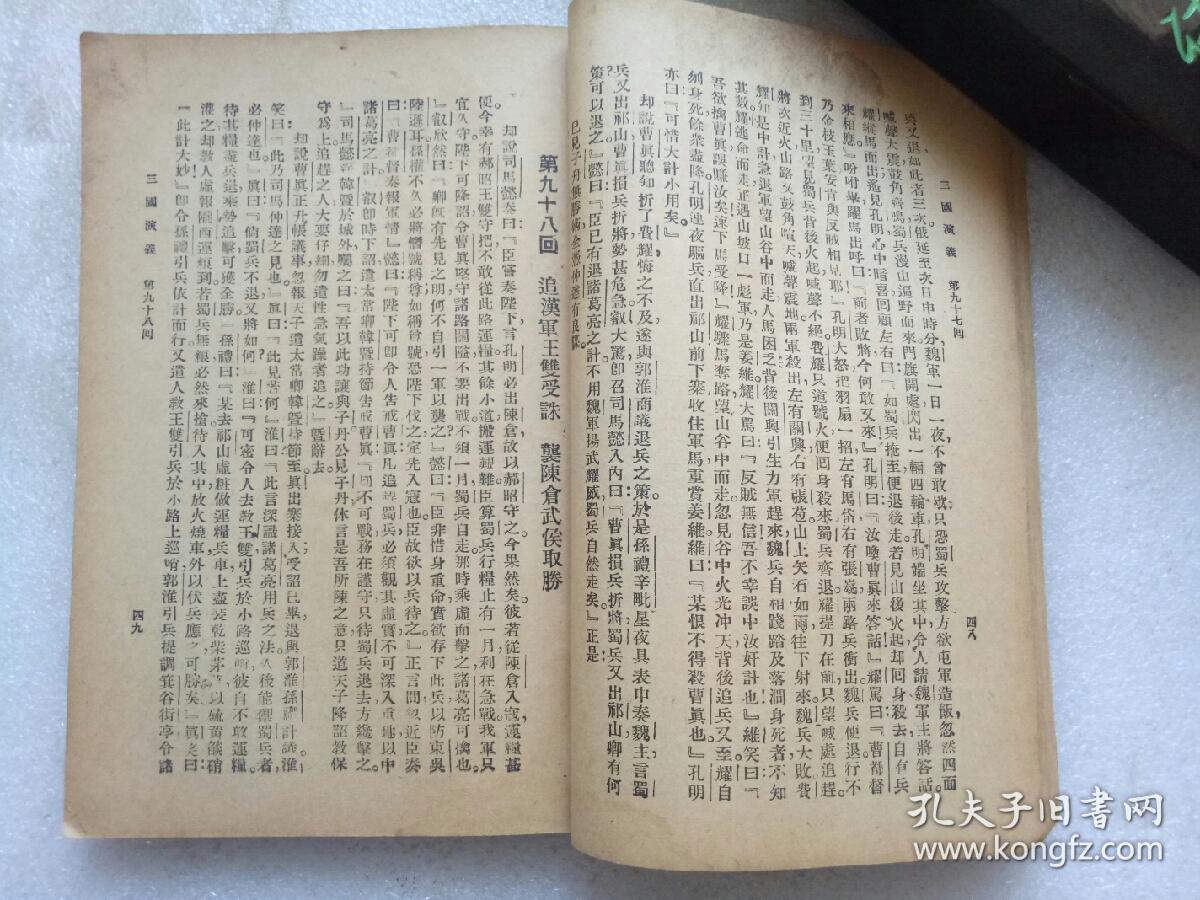 三國演義　第九十七回
四八
兵又退如此者三次俄延至次日申時分魏軍一日一夜不曾敢歇只恐蜀兵攻擊方欲屯軍造飯忽然四面
喊聲大震鼓角齊鳴蜀兵漫山遍野而來門旗開處閃出一輛四輪車孔明端坐其中令人請魏軍主將答話
耀縱馬而出遙見孔明心中暗喜回顧左右曰『如蜀兵掩至便退後走若見山後火起却回身殺去自有兵
來相應』吩咐畢躍馬出呼曰『前者敗將今何敢又來』孔明曰『汝喚曹眞來答話』耀罵曰『曹都督
乃金枝玉葉安肯與反賊相見耶』孔明大怒把羽扇一招左有馬岱右有張嶷兩路兵衝出魏兵便退行不
到三十里望見蜀兵背後火起喊聲不絕費耀只道號火便回身殺來蜀兵齊退耀提刀在前只望喊處追趕
將次近火山路又鼓角喧天喊聲震地兩軍殺出左有關興右有張苞山上矢石如雨往下射來魏兵大敗費
耀知是中計急退軍望山谷中而走人馬困乏背後關興引生力軍趕來魏兵自相踐踏及落澗身死者不知
其數耀逃命而走正遇山坡口一彪軍乃是姜維耀大罵曰『反賊無信吾不幸誤中汝奸計也』維笑曰『
吾欲擒曹眞誤賺汝矣速下馬受降』耀驟馬奪路望山谷中而走忽見谷中火光冲天背後追兵又至耀自
刎身死餘衆盡降孔明連夜驅兵直出祁山前下寨收住軍馬重賞姜維維曰『某恨不得殺曹眞也』孔明
亦曰『可惜大計小用矣』
却說曹眞聽知折了費耀悔之不及遂與郭淮商議退兵之策於是孫禮辛毗星夜具表申奏魏主言蜀
兵又出祁山曹眞損兵折將勢甚危急叡大驚卽召司馬懿入內曰『曹眞損兵折將蜀兵又出祁山卿有何
策可以退之』懿曰『臣已有退諸葛亮之計不用魏軍揚武耀威蜀兵自然走矣』正是
已見子丹無勝術全憑仲達有良謀
第九十八回　追漢軍王雙受誅　襲陳倉武侯取勝
却說司馬懿奏曰『臣嘗奏陛下言孔明必出陳倉故以郝昭守之今果然矣彼若從陳倉入寇運糧甚
便今幸有郝昭王雙守把不敢從此路運糧其餘小道搬運艱難臣算蜀兵行糧止有一月利在急戰我軍只
宜久守陛下可降詔令曹眞堅守諸路關隘不要出戰不須一月蜀兵自走那時乘虛而擊之諸葛亮可擒也
』叡欣然曰『卿旣有先見之明何不自引一軍以襲之』懿曰『臣非惜身重命實欲存下此兵以防東吳
陸遜耳孫權不久必將僭號稱尊如稱尊號恐陛下伐之定先入寇也臣故欲以兵待之』正言間忽近臣奏
曰『曹都督奏報軍情』懿曰『陛下可卽令人告戒曹眞凡追趕蜀兵必須觀其虛實不可深入重地以中
諸葛亮之計』叡卽時下詔遣太常卿韓曁持節告戒曹眞『切不可戰務在謹守只待蜀兵退去方纔擊之
』司馬懿送韓曁於城外囑之曰『吾以此功讓與子丹公見子丹休言是吾所陳之意只道天子降詔教保
守爲上追趕之人大要仔細勿遣性急氣躁者追之』曁辭去
却說曹眞正升帳議事忽報天子遣太常卿韓曁持節至眞出寨接入受詔已畢退與郭淮孫禮計議淮
笑曰『此乃司馬仲達之見也』眞曰『此見若何』淮曰『此言深識諸葛亮用兵之法久後能禦蜀兵者
必仲達也』眞曰『倘蜀兵不退又將如何』淮曰『可密令人去教王雙引兵於小路巡哨彼自不敢運糧
待其糧盡兵退乘勢追擊可獲全勝』孫禮曰『某去祁山虛粧做運糧兵車上盡裝乾柴茅草以硫黃燄硝
灌之却教人虛報隴西運糧到若蜀兵無糧必然來搶待入其中放火燒車外以伏兵應之可勝矣』眞喜曰
『此計大妙』卽令孫禮引兵依計而行又遣人教王雙引兵於小路上巡哨郭淮引兵提調箕谷街亭令諸
三國演義　第九十八回
四九
孔夫子旧书网
www.kongfz.com